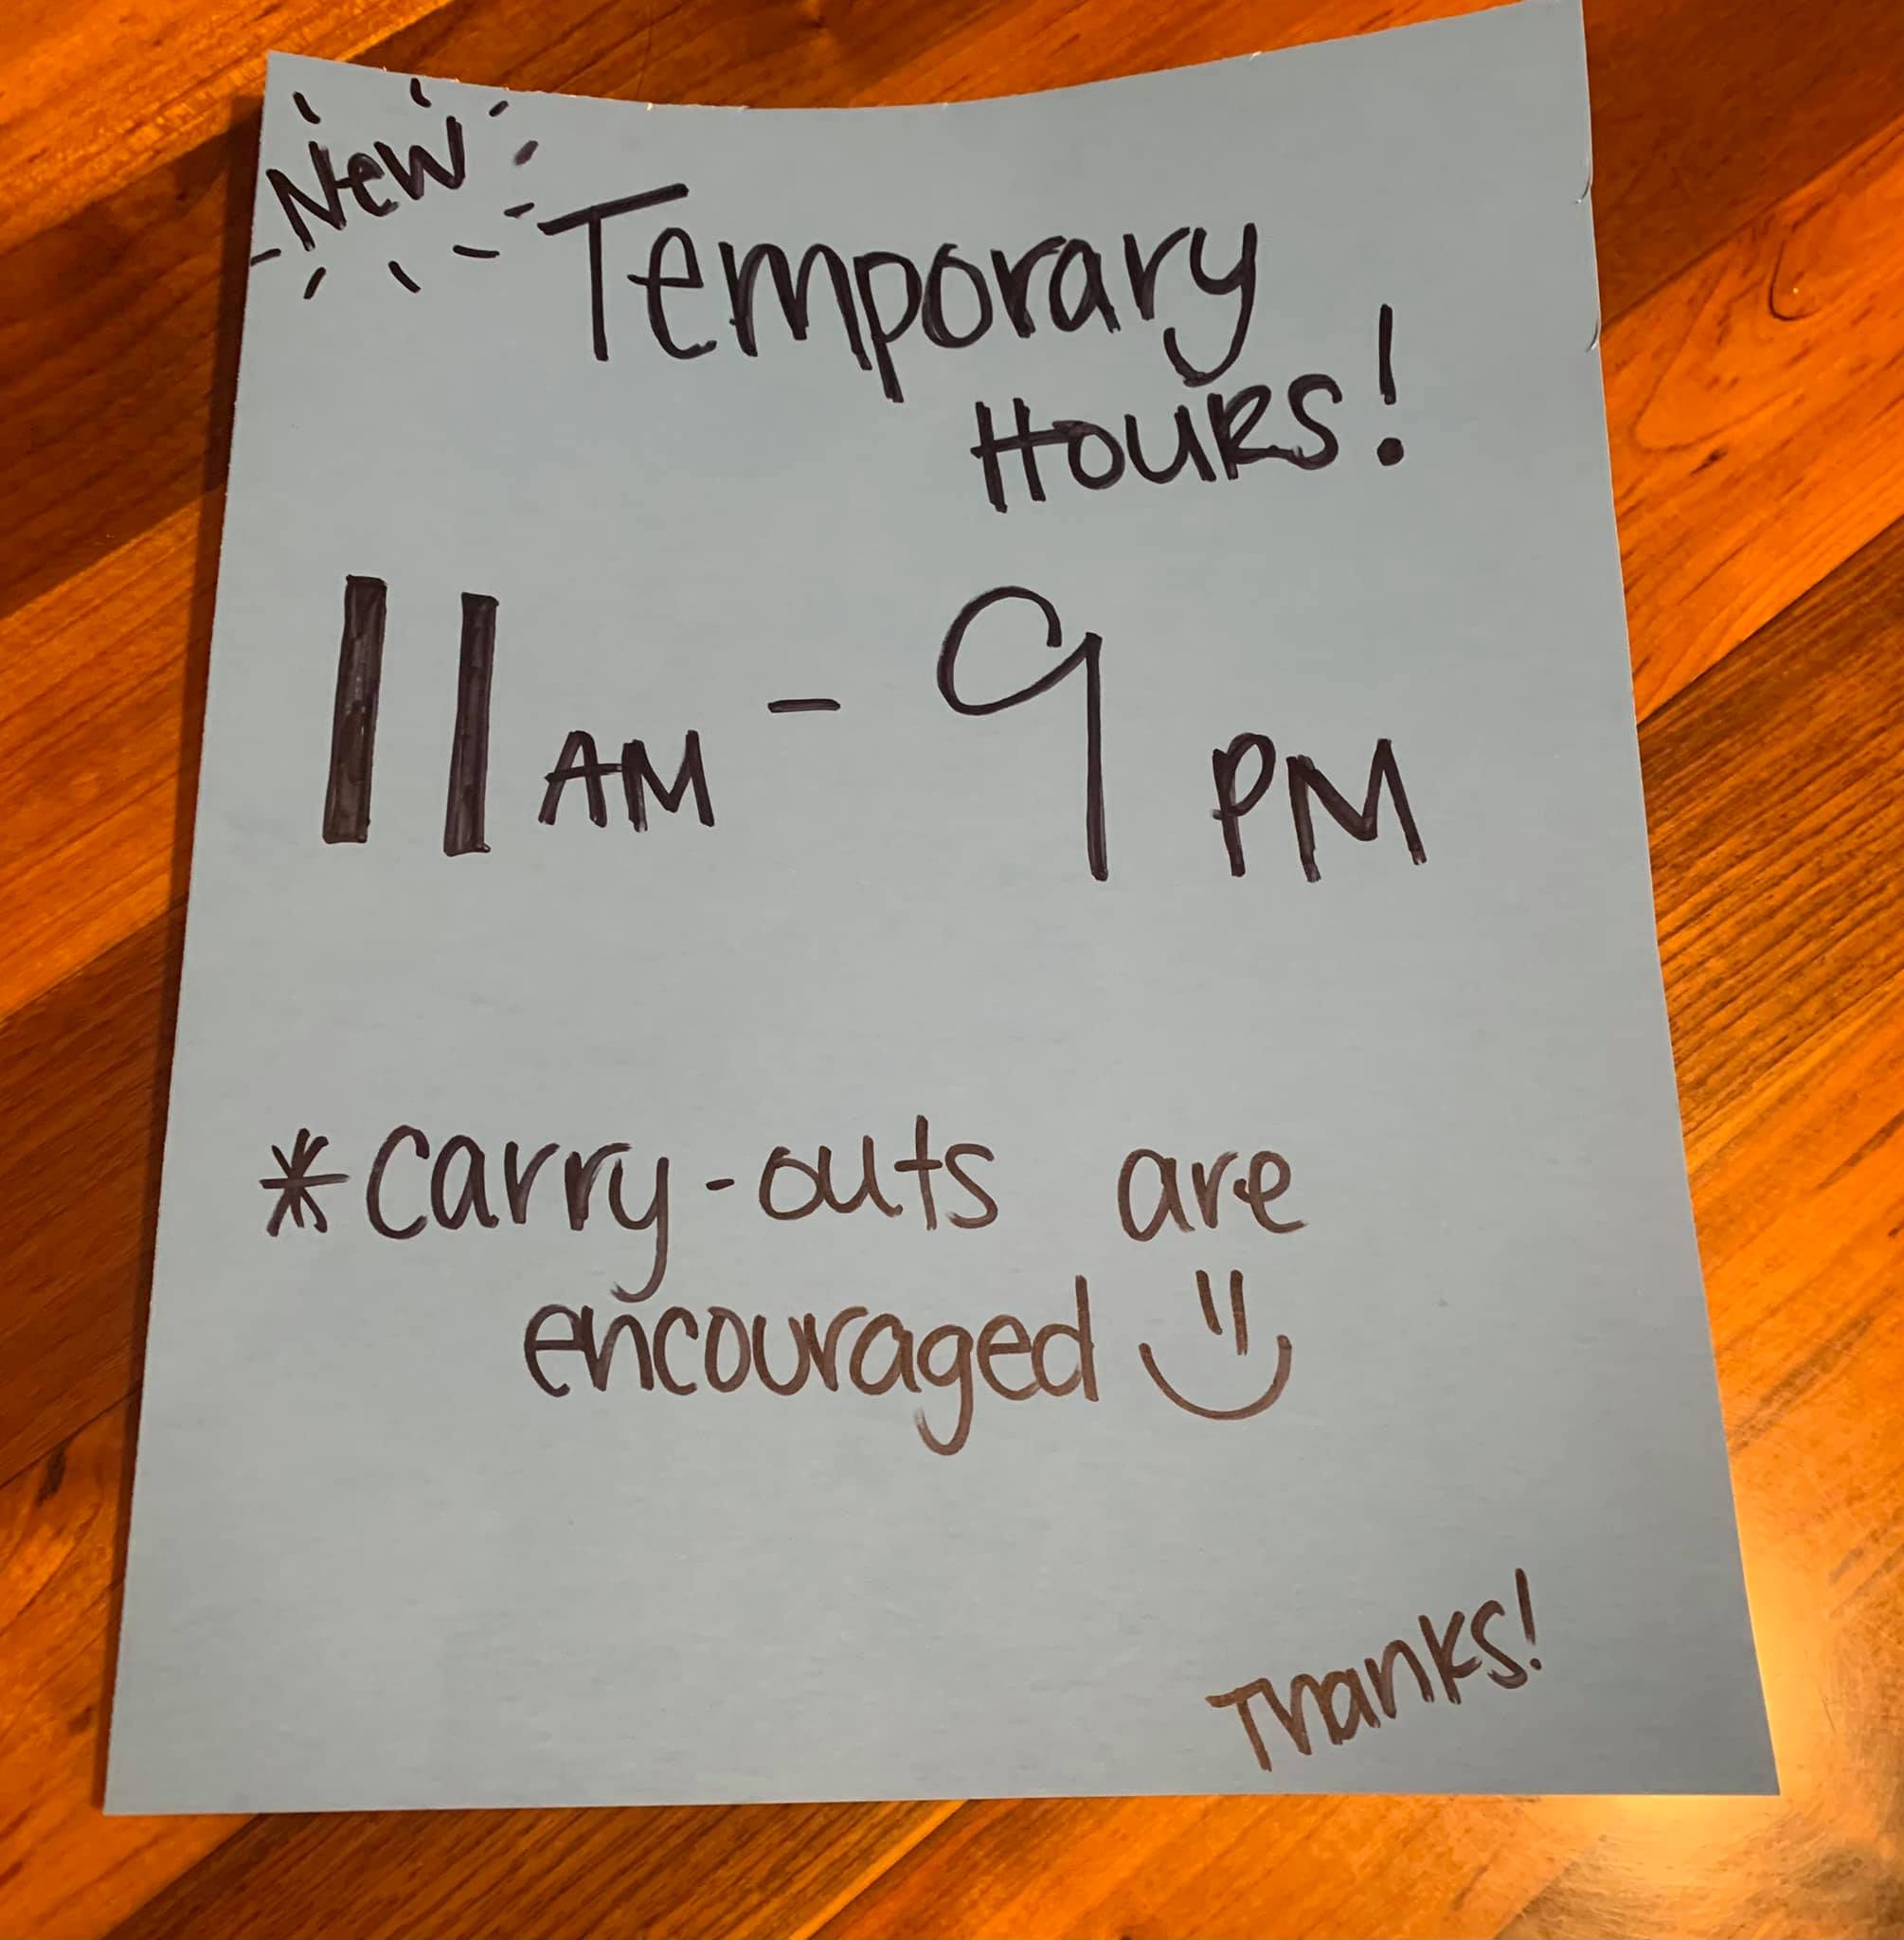 New
Temporary
HOURS!
11 AM - 9 PM
*Carry-outs are
encouraged
Thanks!